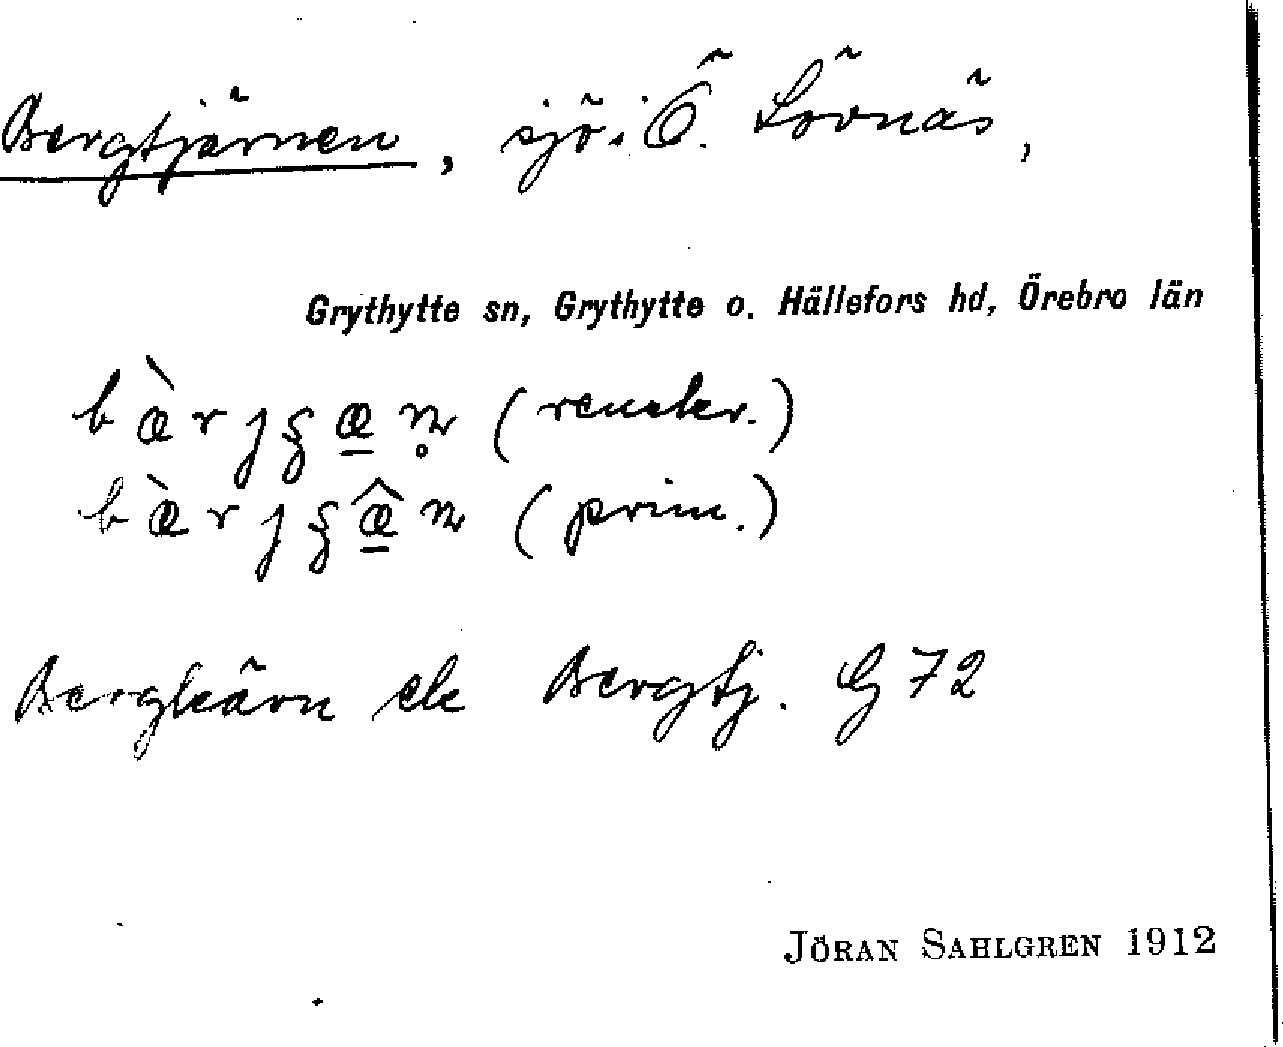 Bergtjärnen, sjö i Ö. Lövnäs,
Grythytte sn, Grythytte o. Hällefors hd, Örebro län
bæ̀rjʂæ̱n̥
bæ̀rjʂæ̱̂n (prim.)
Bergkärn ek Bergtj. G 72
JÖRAN SAHLGREN 1912